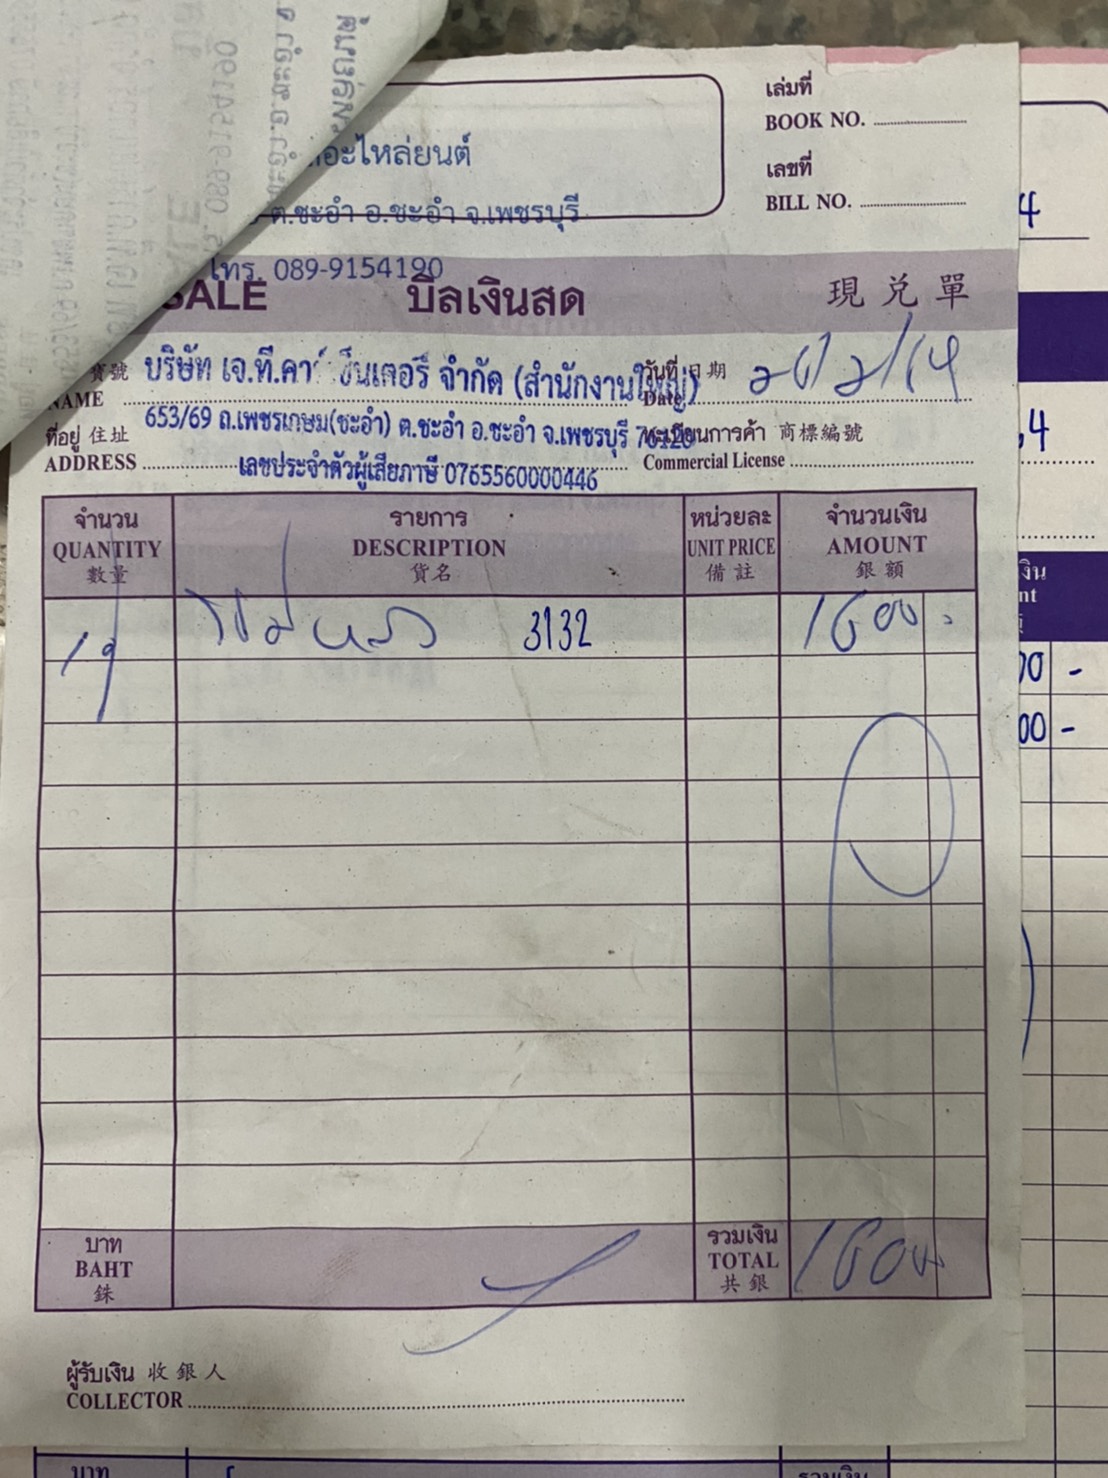 อะไหล่ยนต์
ต.ชะอำ อ.ชะอำ จ.เพชรบุรี
โทร. 089-9154190
เล่มที่
BOOK NO.
เลขที่
BILL NO.
SALE บิลเงินสด 現兌單
寶號 บริษัท เจ.ที.คาร์ เซ็นเตอรี จำกัด (สำนักงานใหญ่) วันที่ 日期
NAME Date
653/69 ถ.เพชรเกษม(ชะอำ) ต.ชะอำ อ.ชะอำ จ.เพชรบุรี 76120
ที่อยู่ 住址 ทะเบียนการค้า 商標編號
ADDRESS เลขประจำตัวผู้เสียภาษี 0765560000446 Commercial License
จำนวน รายการ หน่วยละ จำนวนเงิน
QUANTITY DESCRIPTION UNIT PRICE AMOUNT
數量 貨名 備註 銀額
3132 1600 -
บาท รวมเงิน
BAHT TOTAL 1600
銖 共銀
ผู้รับเงิน 收銀人
COLLECTOR
บาท รวมเงิน